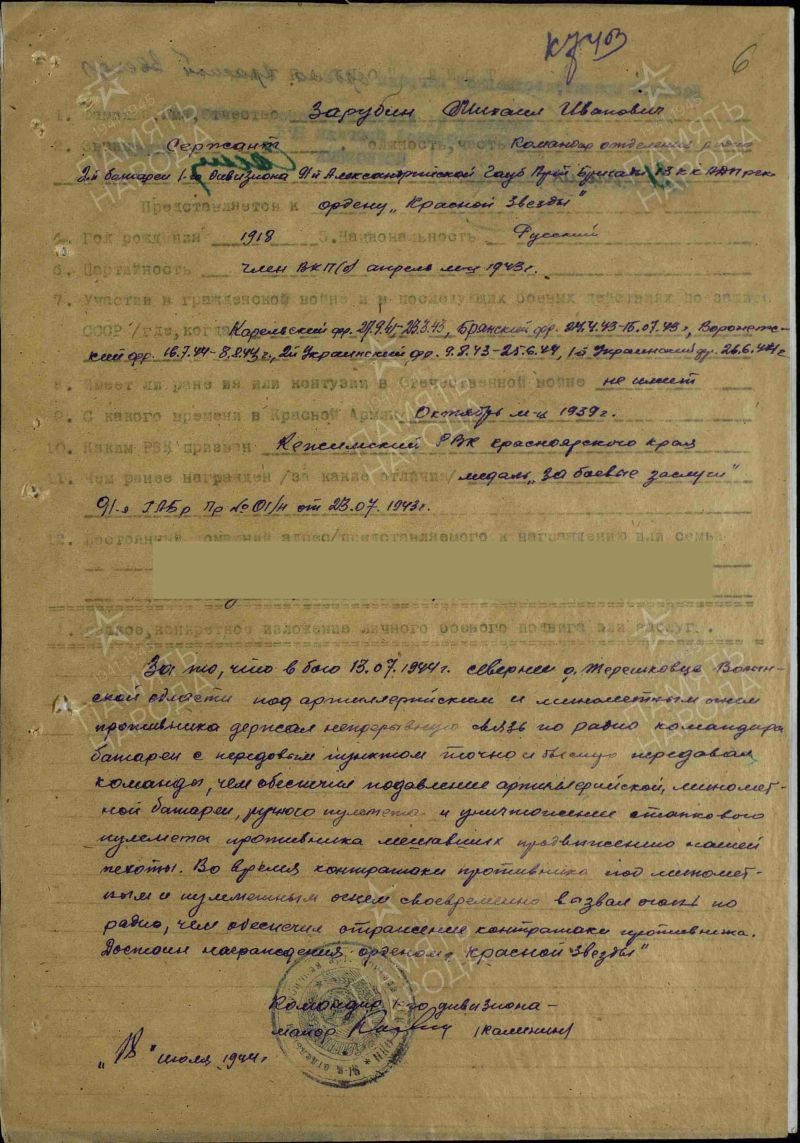 6
1. Фамилия, имя, отчество Зарубин Михаил Иванович
2. Звание Сержант должность, часть Командир отделения радио
2й батареи 1-го дивизиона 91й Александрийской Гауб Арт Бригады 13 РГК
Представляется к ордену „Красной Звезды"
4. Год рождения 1918 5. Национальность Русский
6. Партийность член ВКП(б) апрель м-ц 1943г.
7. Участие в гражданской войне и в последующих боевых действиях по защите
СССР /где, когда Карельский фр. Брянский фр. 24.4.43-15.07.43г, Воронежс-
кий фр. 2й Украинский фр. 9.8.43-25.6.44, 1й Украинский фр. 26.6.44г
8. Имеет ли ранения или контузии в Отечественной войне не имеет
9. С какого времени в Красной Армии Октябрь м-ц 1939г.
10. Каким РВК призван Кежемский РВК Красноярского края
11. Чем ранее награжден /за какие отличия/ медаль „За боевые заслуги"
91-я ГАБр Пр № 01/н от 23.07.1943г.
12. Постоянный домашний адрес/представляемого к награждению или семьи
Краткое, конкретное изложение личного боевого подвига или заслуг.
За то, что в бою 13.07.1944г. севернее д. Терешковец Волын-
ской области под артиллерийским и минометным огнем
противника держал непрерывную связь по радио командира
батареи с передовым пунктом точно и быстро передавал
команды, чем обеспечил подавление артиллерийской, миномет-
ной батареи, ручного пулемета и уничтожение станкового
пулемета противника мешавших продвижению нашей
пехоты. Во время контратаки противника под миномет-
ным и пулеметным огнем своевременно вызвал огонь по
радио, чем обеспечил отражение контратаки противника.
Достоин награждения орденом „Красной Звезды"
Командир 1-го дивизиона -
майор (Калинин)
„18" июля 1944г.
ПАМЯТЬ НАРОДА